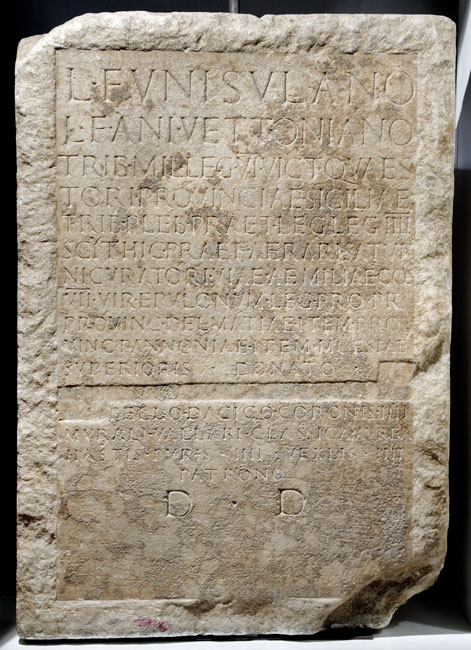 L·FVNISVLANO
L·F·ANI·VETTONIANO
TRIB·MIL·LEG·VI·VICT·QVAES
TORI·PROVINCIAE·SICILIAE
TRIB·PLEB·PRAET·LEG·LEG·IIII
SCYTHIC·PRAEF·AERARI·SATVR
NI·CVRATORI·VIAE·AEMILIAE·COS
VII·VIR·EPVLONVM·LEG·PRO·PR
PROVINC·DELMATIAE·ITEM·PRO
VINC·PANNONIAE·ITEM·MOESIAE
SVPERIORIS · DONATO
BELLO·DACICO·CORONIS·IIII
MVRALI·VALLARI·CLASSICA·AVREA
HASTIS·PVRIS·IIII·VEXILLIS·IIII
PATRONO
D · D